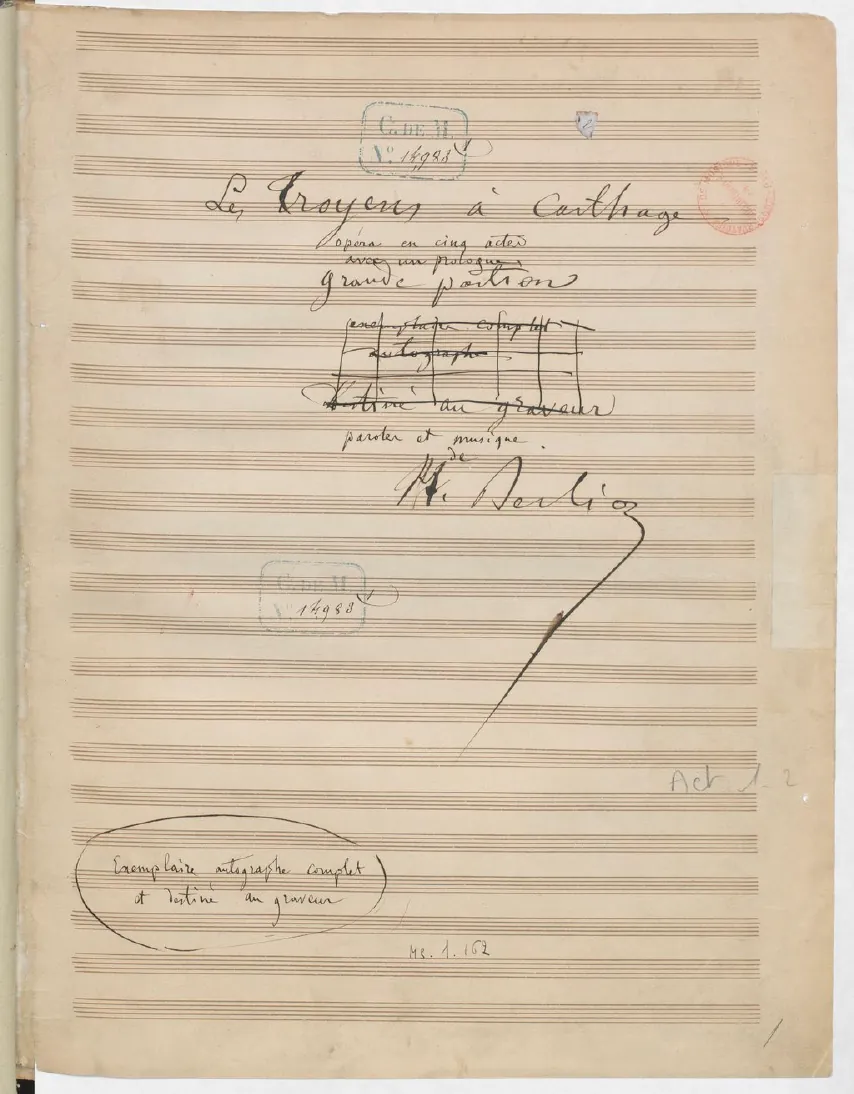 C. DE M.
N.º 14,988
Les Troyens à Carthage
opéra en cinq actes
avec un prologue
grande partition
exemplaire complet
autographe
destiné au graveur
paroles et musique
de
H. Berlioz
C. DE M.
N.º 14,988
Act. 1. 2
Exemplaire autographe complet
et destiné au graveur
MS. 1.162